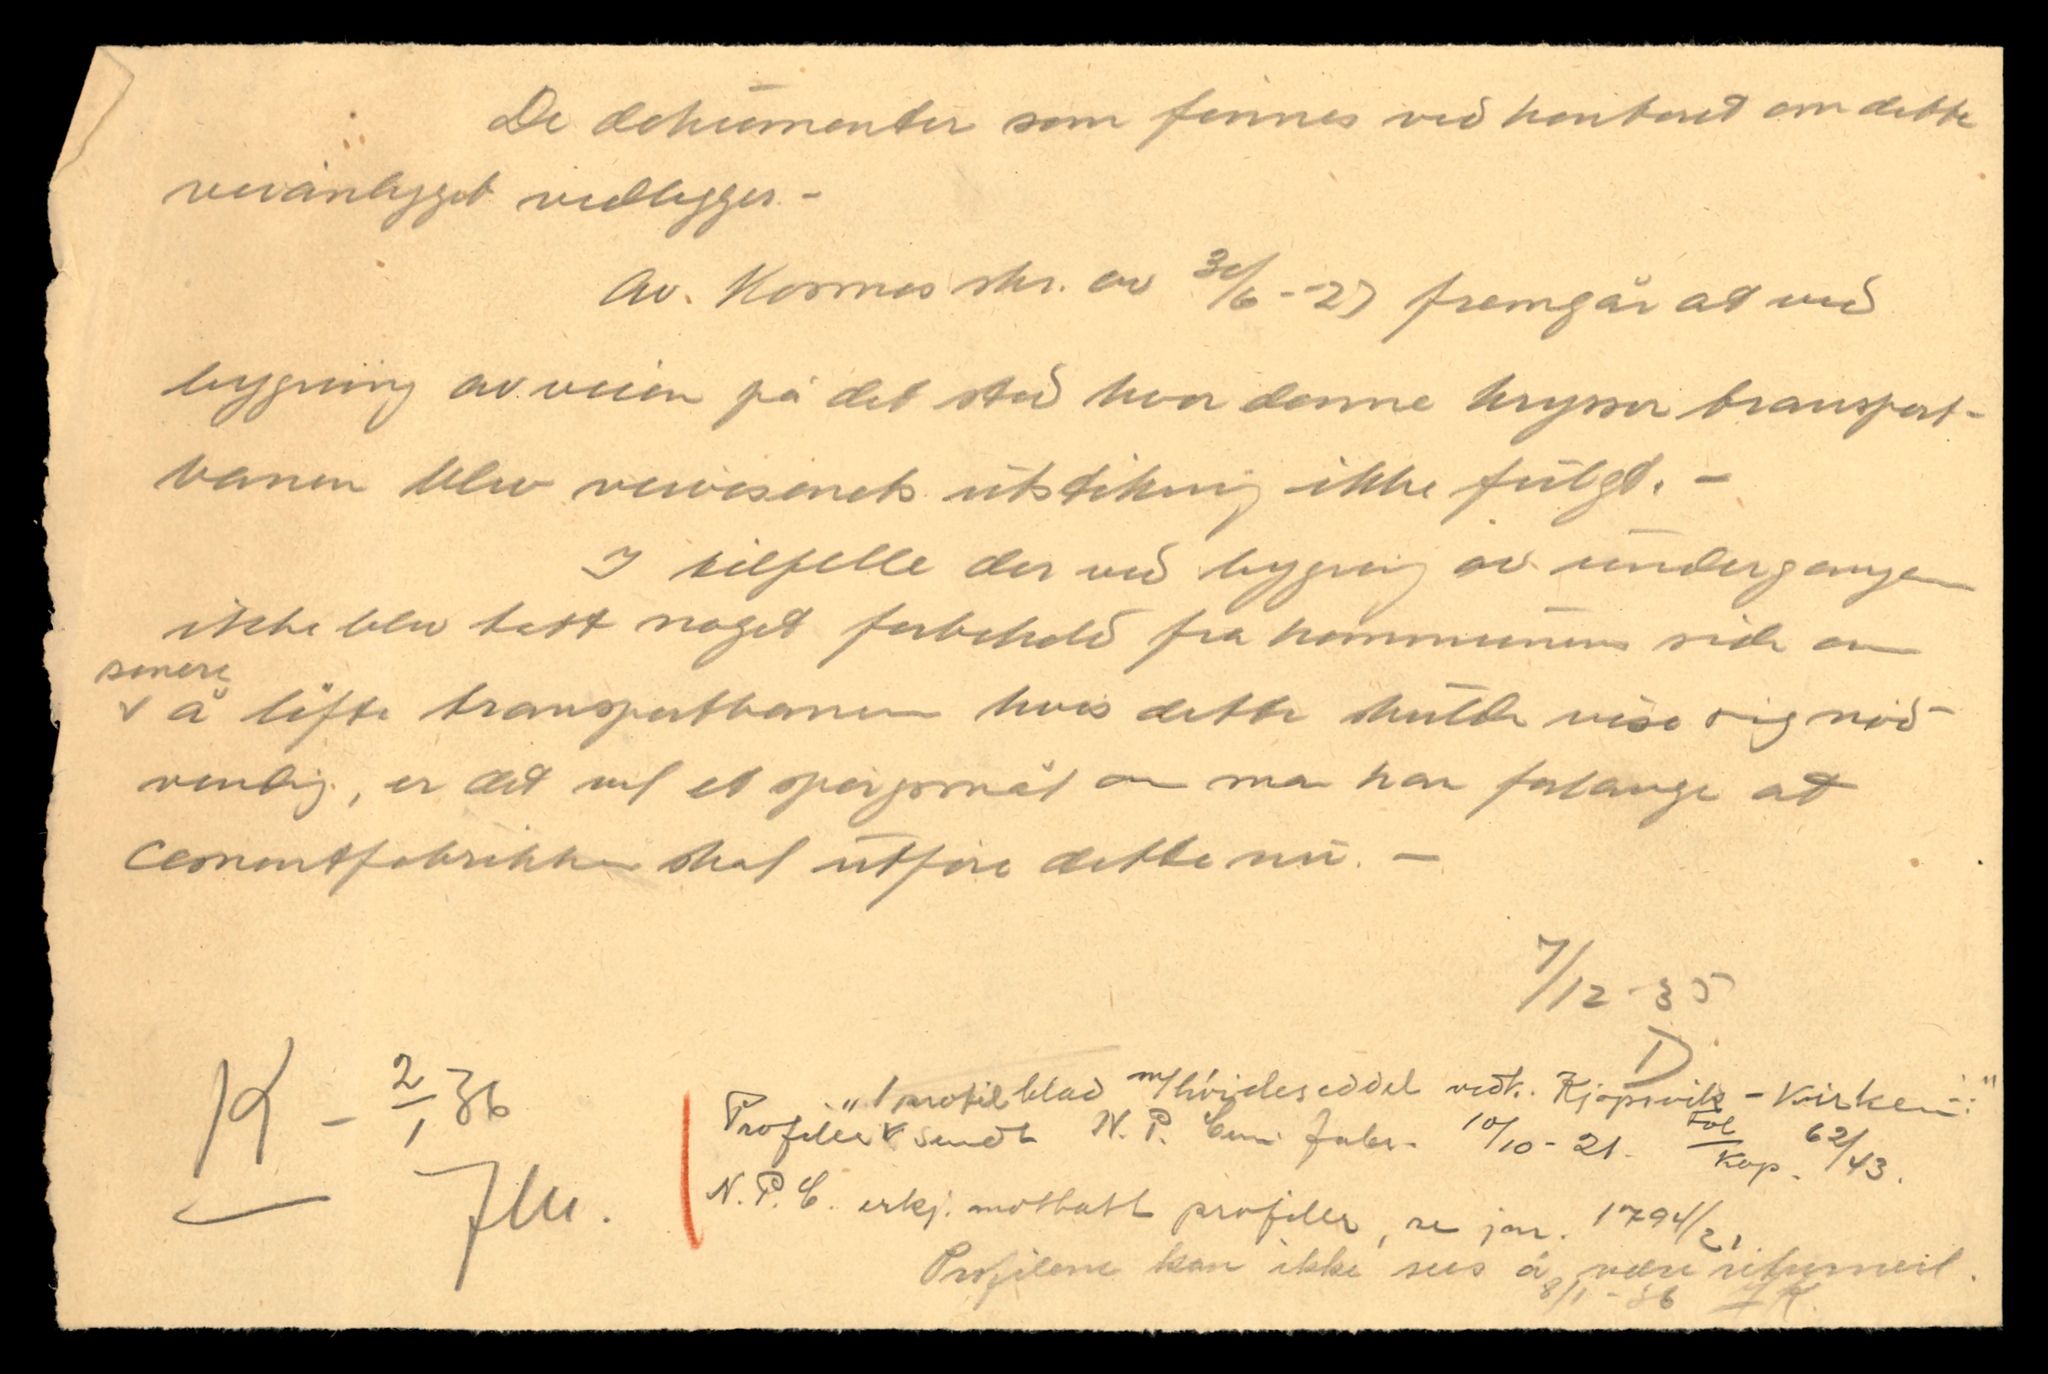 De dokumenter som finnes ved kontoret om dette
veianlegget vedlegges. -
Av Kosmos skr. av 30/6-27 fremgår at ved
bygning av veien på det sted hvor denne krysser transport-
banen blev veivesenets utstikning ikke fulgt. -
I tilfelle der ved bygning av undergangen
ikke blev tatt noget forbehold fra kommunens side om
senere
v å löfte transportbanen hvis dette skulde vise sig nöd-
vendig, er det vel et spörgsmål om man kan forlange at
Cementfabrikken skal utföre dette nu. -
7/12-35
D
K - 2/1 36
"1 profilblad m/höideseddel vedk. Kjøpsvik - Kirken:"
Profiler v sendt N. P. Cem. fabr. 10/10-21. Fol/Kop. 62/43.
N. P. C. erkj. mottatt profiler, se jnr. 1794/21
Profilene kan ikke sees å være returneret.
8/1-36